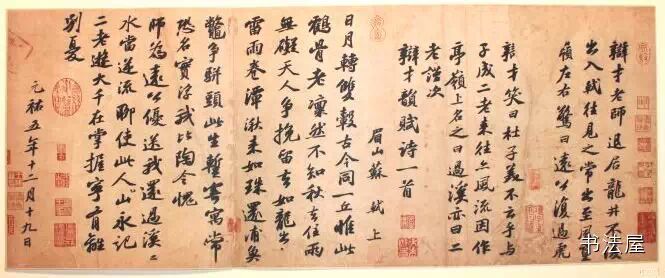 辯才老師退居龍井不復
出入軾往見之常出至風篁
嶺左右驚曰遠公復過虎
辯才笑曰杜子美不云乎與
子成二老來往亦風流因作
亭嶺上名之曰過溪亦曰二
老謹次
辯才韻賦詩一首
眉山蘇軾上
日月轉雙轂古今同一丘惟此
鶴骨老凜然不知秋去住兩
無礙天人爭挽留去如龍出
雷雨卷潭湫來如珠還浦魚
鱉爭駢頭此生暫寄寓常
恐名實浮我比陶令愧
師為遠公優送我還過溪溪
水當逆流聊使此人山永記
二老遊大千在掌握寧有離
別憂
元祐五年十二月十九日
书法屋